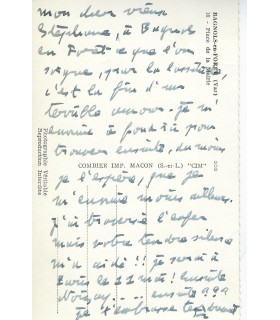 mon cher vieux
Stéphane, à Bagnols
en Forêt ce que l'on
soigne, par la lassitude,
c'est la fin d'un
terrible amour. je m'
ennuie à pour
trouver ensuite du moins
je l'espère, que je
m'ennuie moins ailleurs.
j'ai traversé l'enfer
mais votre tendre silence
m'a aidé !! je serai à
Paris le 11 mai ! Ensuite
ensuite ???
je t'embrasse tendrement
BAGNOLS-en-FORÊT (Var)
10 - Place de la Mairie
COMBIER IMP. MACON (S.-et-L.) "CIM"
Photographie Véritable
Reproduction Interdite